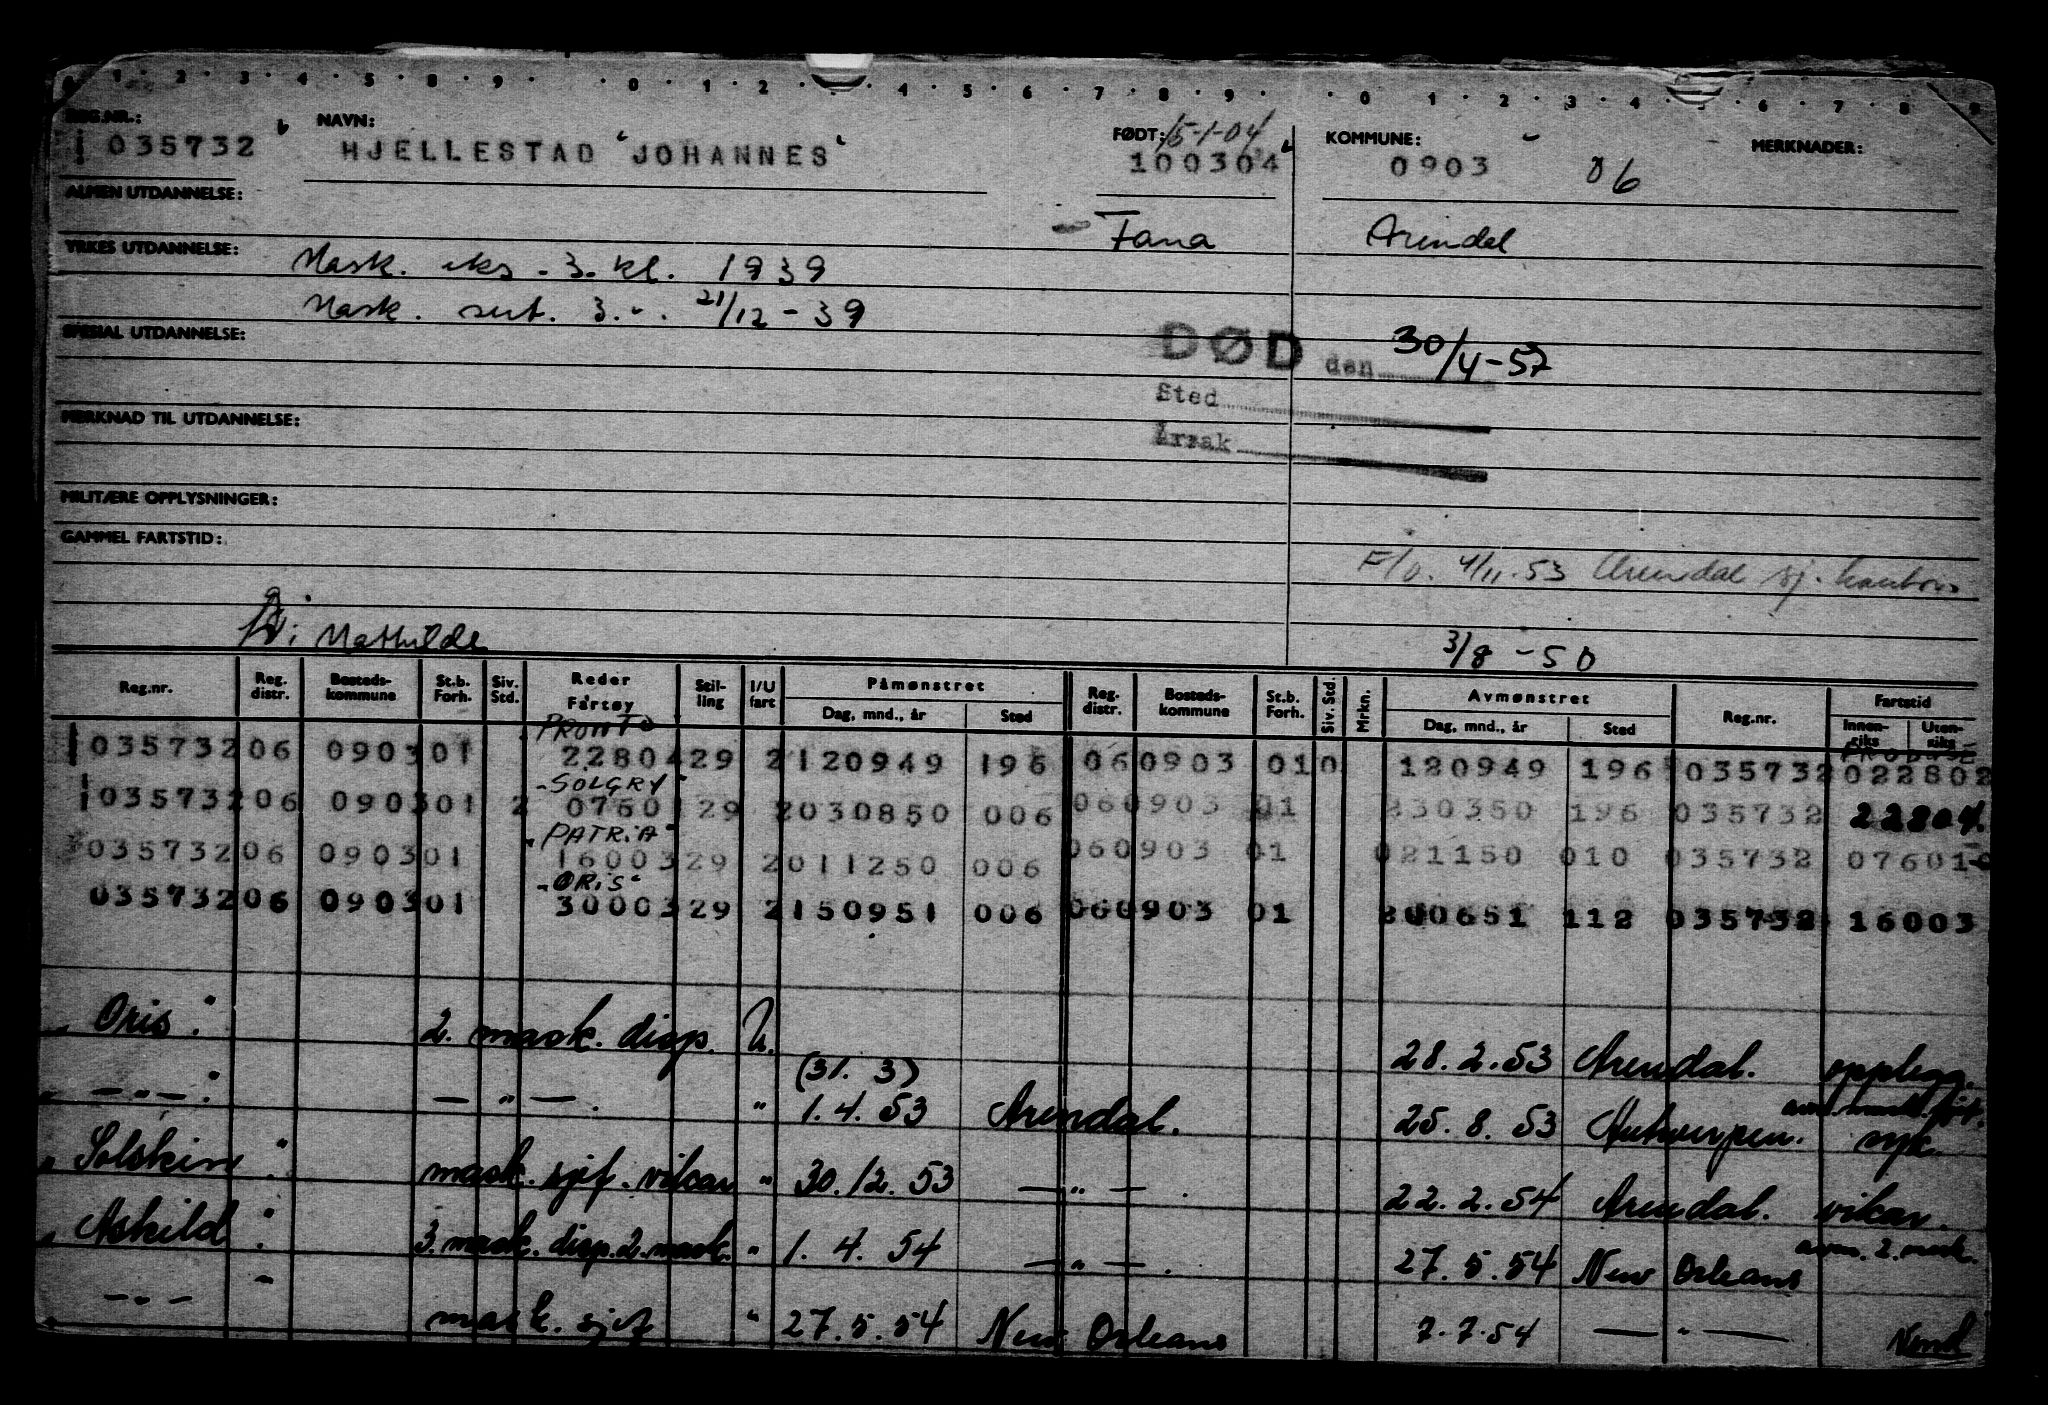 0 1 2 3 4 5 8 9 0 1 2 4 5 6 7 8 9 0 1 2 3 4 6 7 8 9
REG.NR.: NAVN: FØDT: 15-1-04 KOMMUNE: MERKNADER:
035732 HJELLESTAD JOHANNES 100304 0903 06
ALMEN UTDANNELSE:
Fana Arendal
YRKES UTDANNELSE: Mask. eks. 3. kl. 1939
Mask. sert. 3. " 21/12 - 39
SPESIAL UTDANNELSE:
DØD den 30/4-57
Sted
MERKNAD TIL UTDANNELSE:
Årsak
MILITÆRE OPPLYSNINGER:
GAMMEL FARTSTID:
F/o. 4/11.53 Arendal sj.
Mathilde
3/8 - 50
Reg.nr. Reg. distr. Bosteds-kommune St.b. Forh. Siv. Std. Reder Fartøy Stil-ling I/U fart Påmønstret Dag, mnd., år Sted Reg. distr. Bosteds-kommune St.b. Forh. Siv. Std. Mrkn. Avmønstret Dag, mnd., år Sted Reg.nr. Fartstid Innen-riks Uten-riks
PRONTO
035732 06 0903 01 22804 29 2 120949 196 06 0903 01 0 120949 196 035732 022802
"SOLGRY"
035732 06 0903 01 2 0760 29 2 030850 006 06 0903 01 330350 196 035732 22804
"PATRIA"
035732 06 0903 01 16003 29 2 011250 006 06 0903 01 021150 010 035732 07601
"ORIS"
035732 06 0903 01 30003 29 2 150951 006 06 0903 01 300651 112 035732 16003
"Oris". 2. mask. disp. U. 28.2.53 Arendal. opplegg.
(31. 3)
" — " — ". — " — . " 1.4.53 Arendal. 25.8.53 Antwerpen. syk.
"Solskin". mask. sjef. vikar " 30.12.53 — " — . 22.2.54 Arendal. vikar.
"Askild". 3. mask. disp. 2. mask. " 1.4.54 — " — . 27.5.54 New Orleans avm. 2. mask.
— " — mask. sjef " 27.5.54 New Orleans 7.7.54 — " — Vend